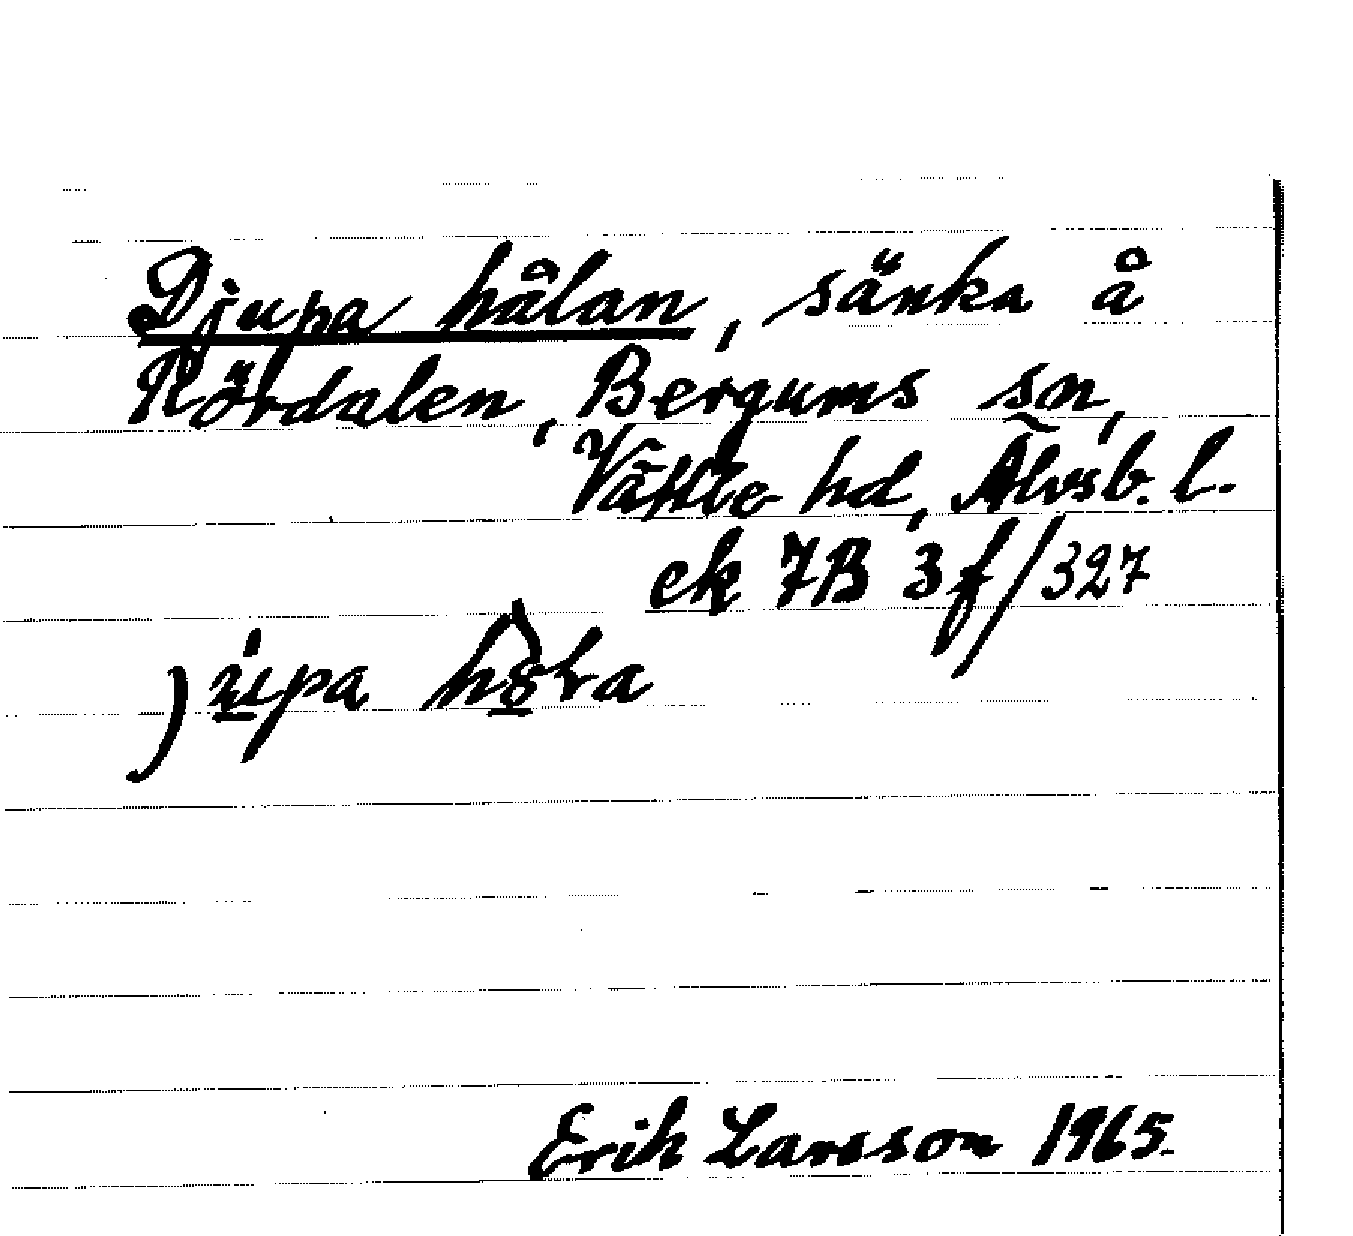 Djupa hålan, sänka å
Rördalen, Bergums sn,
Vättle hd, Älvsb. l.
ek 7B 3f/327
Erik Larsson 1965.